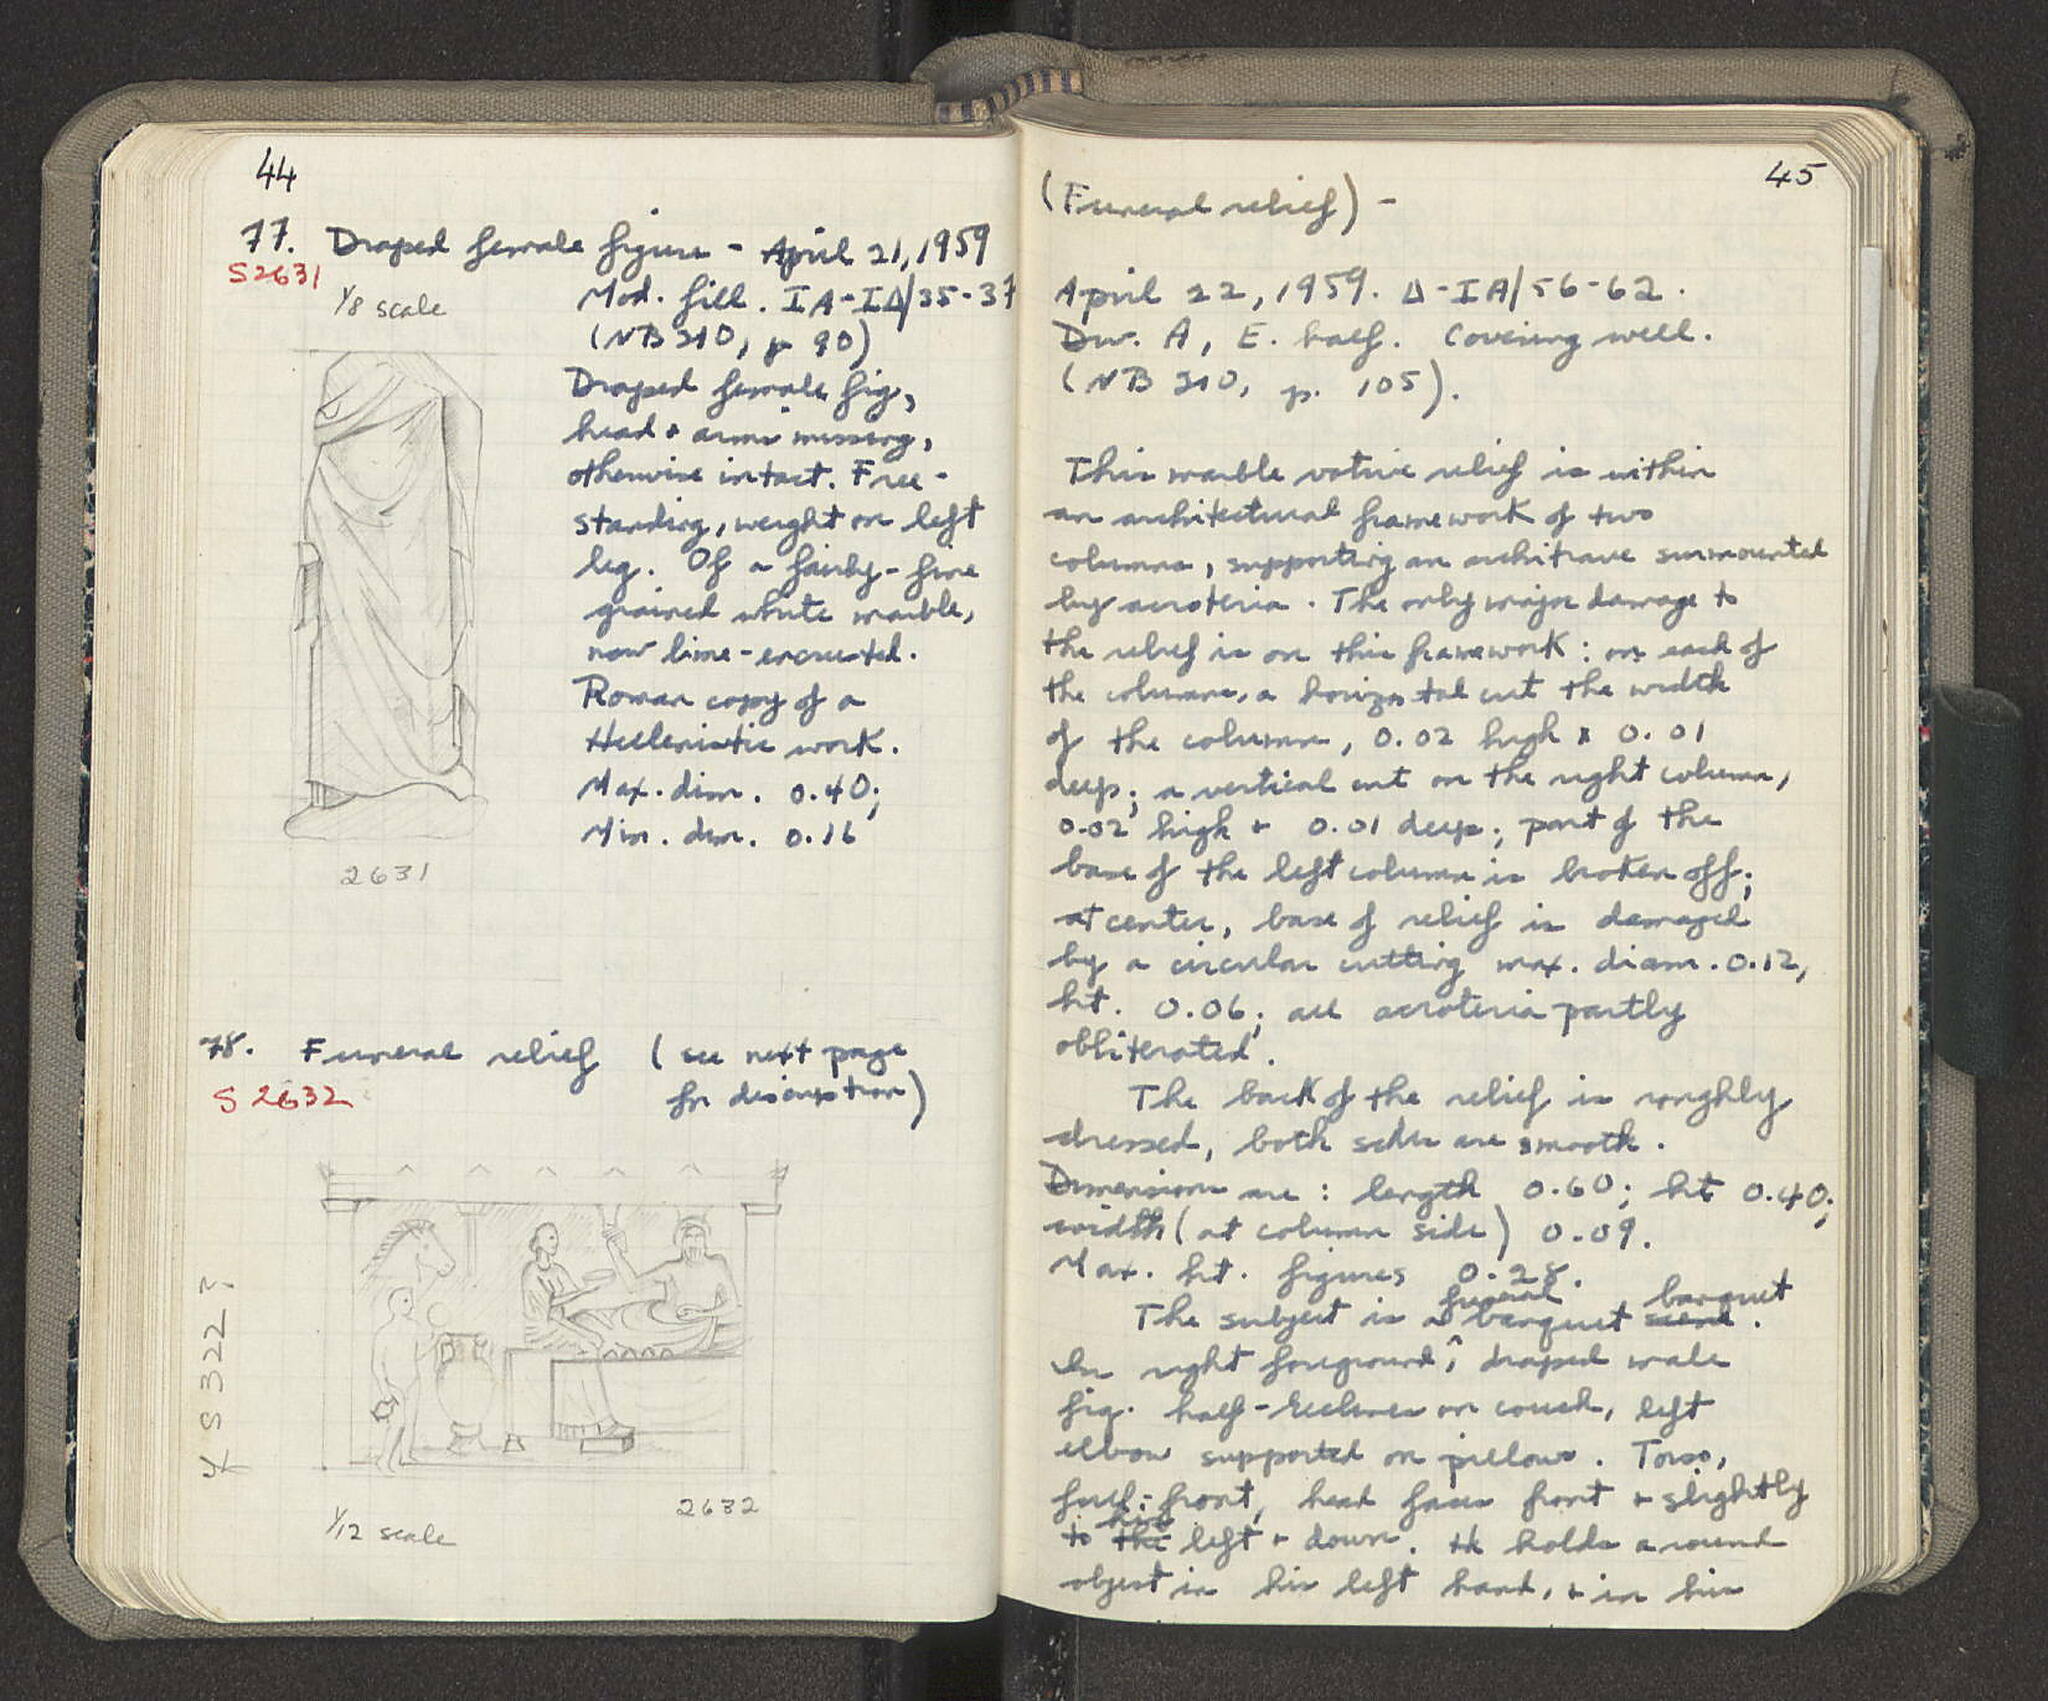 44
77. Draped female figure - April 21, 1959
S2631
1/8 scale
Mod. fill. IA-IΔ/35-37
(NB 210, p 90)
Draped female fig,
head + arms missing,
otherwise intact. Free-
standing, weight on left
leg. Of a fairly-fine
grained white marble,
now lime-encrusted.
Roman copy of a
Hellenistic work.
Max. dim. 0.40;
Min. dim. 0.16
2631
78. Funeral relief (see next page
for discription)
S 2632
X S 322?
1/12 scale
2632
45
(Funeral relief) -
April 22, 1959. Δ-IA/56-62.
Dw. A, E. half. Covering well.
(NB 210, p. 105).
This marble votive relief is within
an architectural framework of two
columns, supporting an architrave surmounted
by acroteria. The only major damage to
the relief is on this framework: on each of
the columns, a horizontal cut the width
of the column, 0.02 high x 0.01
deep; a vertical cut on the right column,
0.02 high + 0.01 deep; part of the
base of the left column is broken off;
at center, base of relief is damaged
by a circular cutting max. diam. 0.12,
ht. 0.06; all acroteria partly
obliterated.
The back of the relief is roughly
dressed, both sides are smooth.
Dimensions are: length 0.60; ht 0.40;
width (at column side) 0.09.
Max. ht. figures 0.28.
The subject is a funeral banquet scene banquet.
In right foreground, draped male
fig. half-reclines on couch, left
elbow supported on pillows. Torso,
full-front, head faces front + slightly
to the his left + down. He holds a round
object in his left hand, + in his